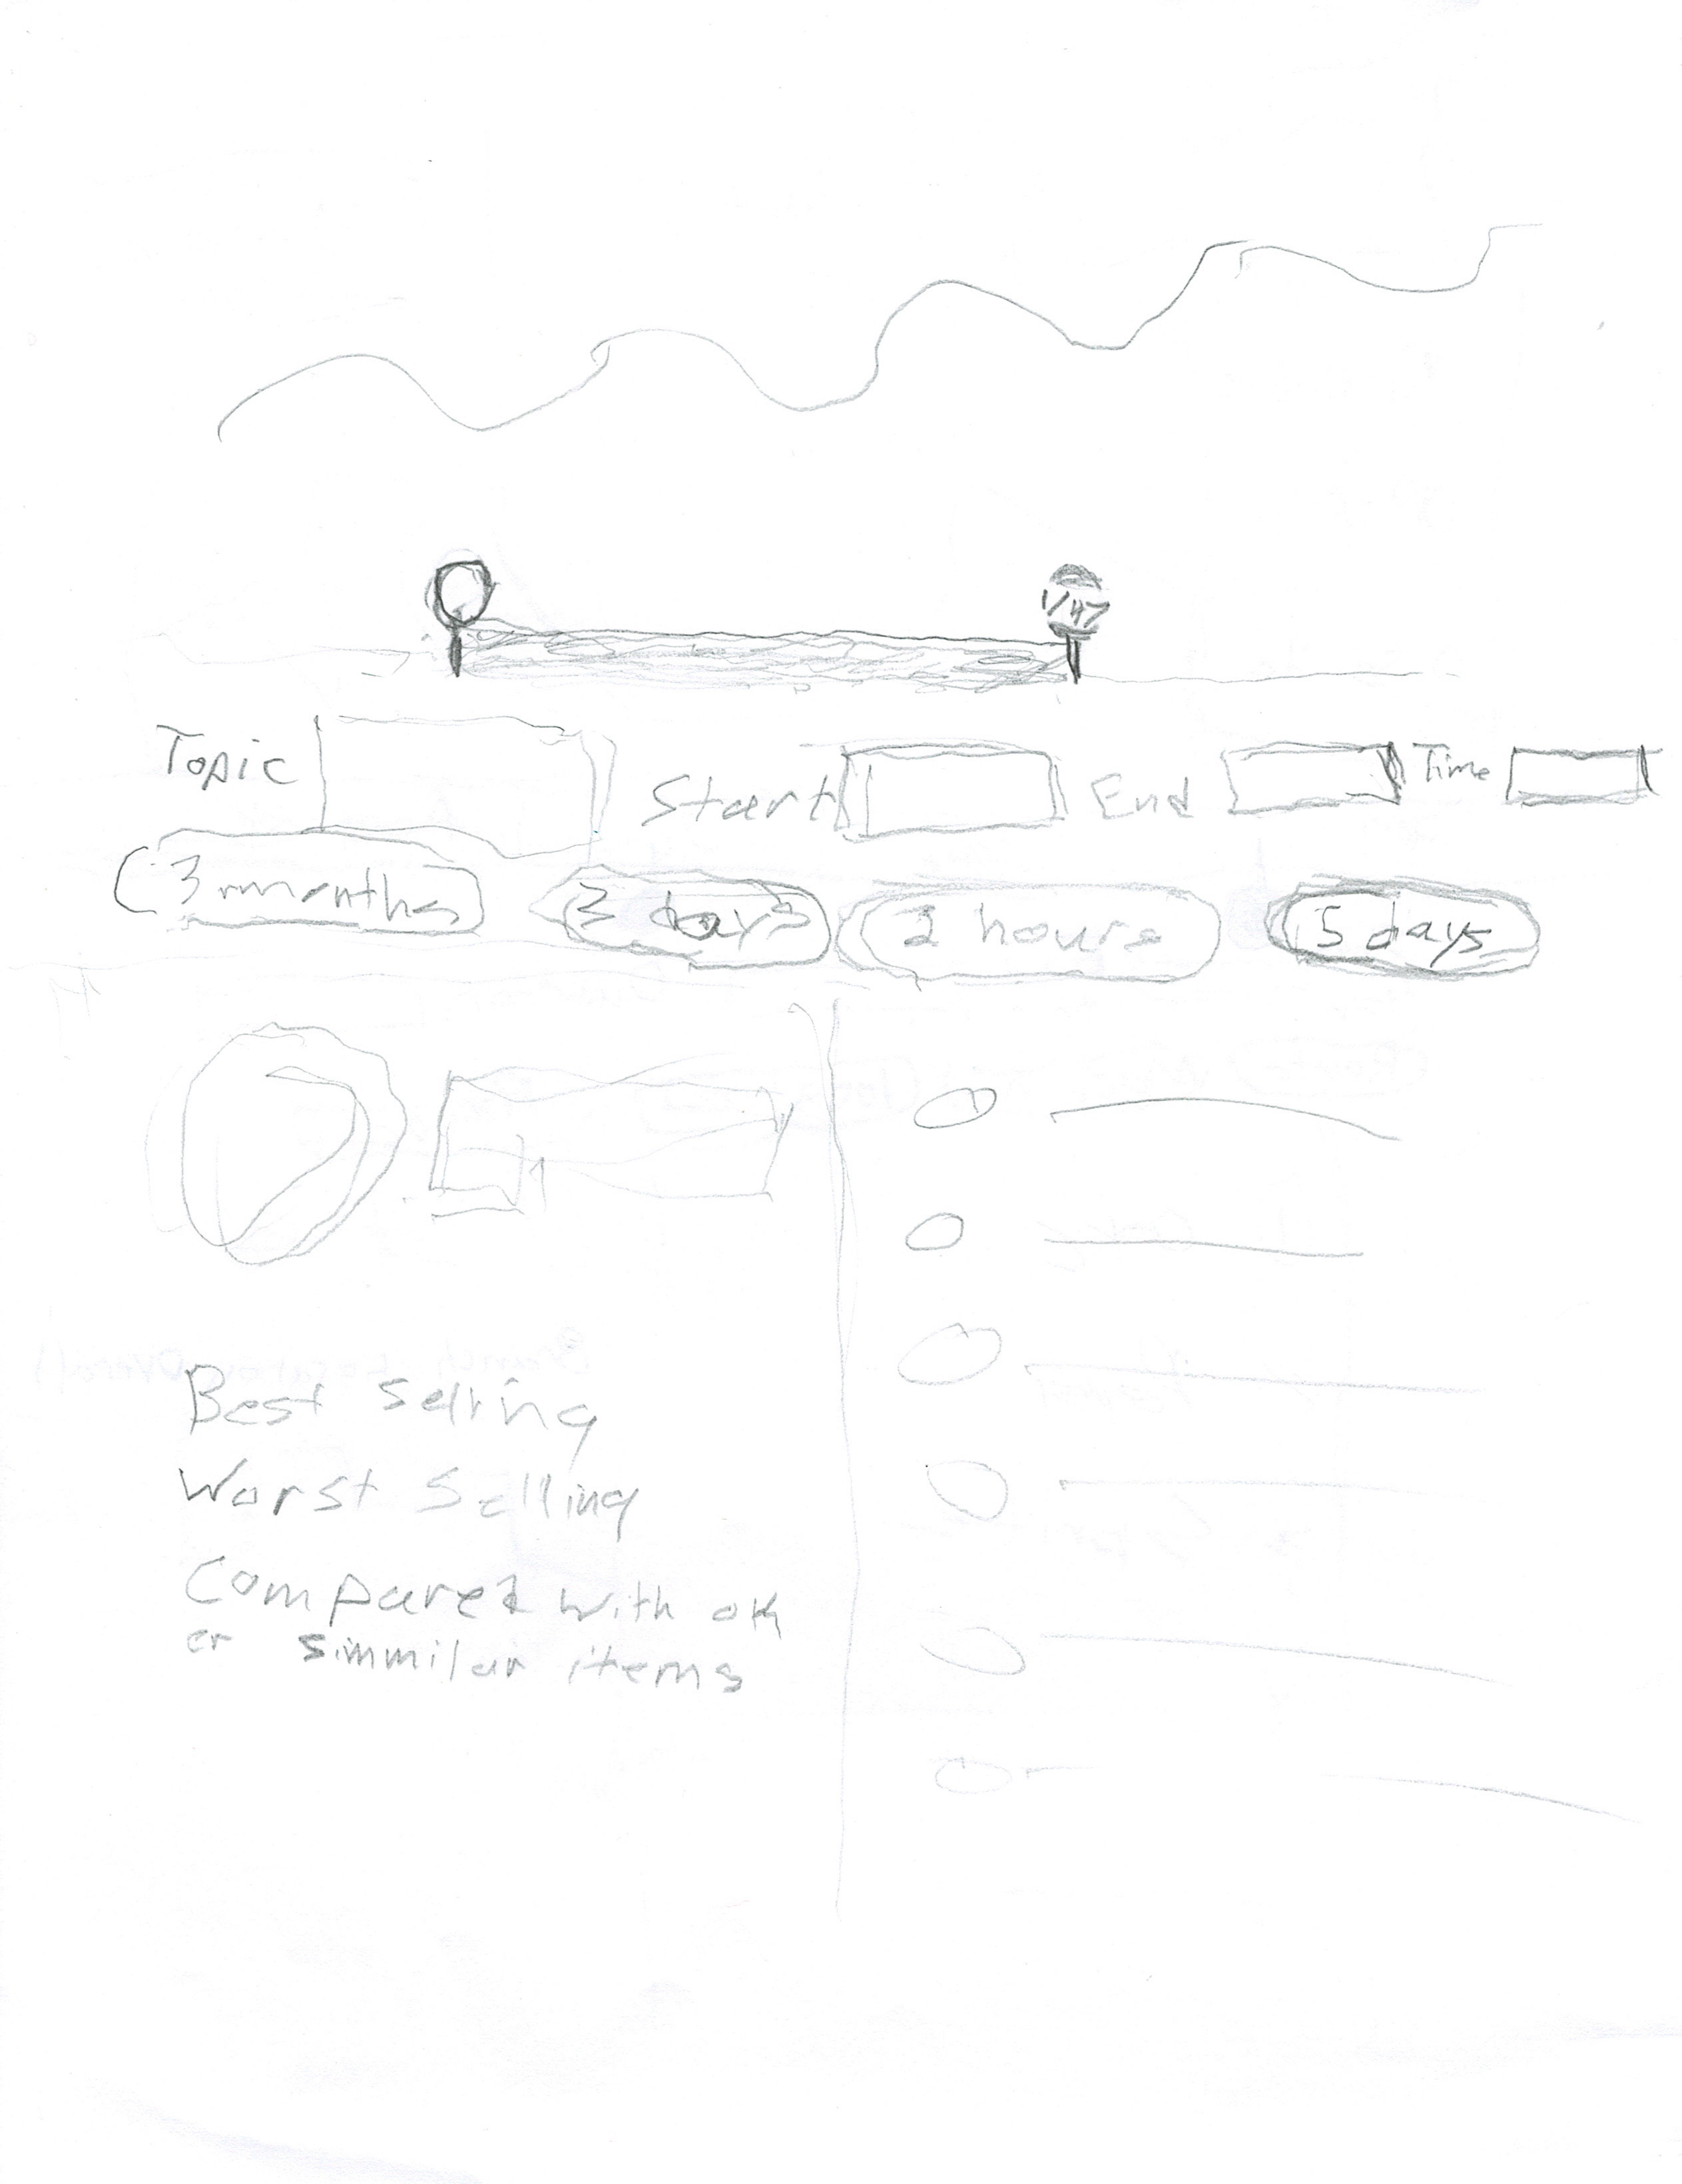 1/47
Topic Start End Time
3 months 3 days 2 hours 5 days
Best Selling
Worst Selling
Compared with oth
er simmilar items